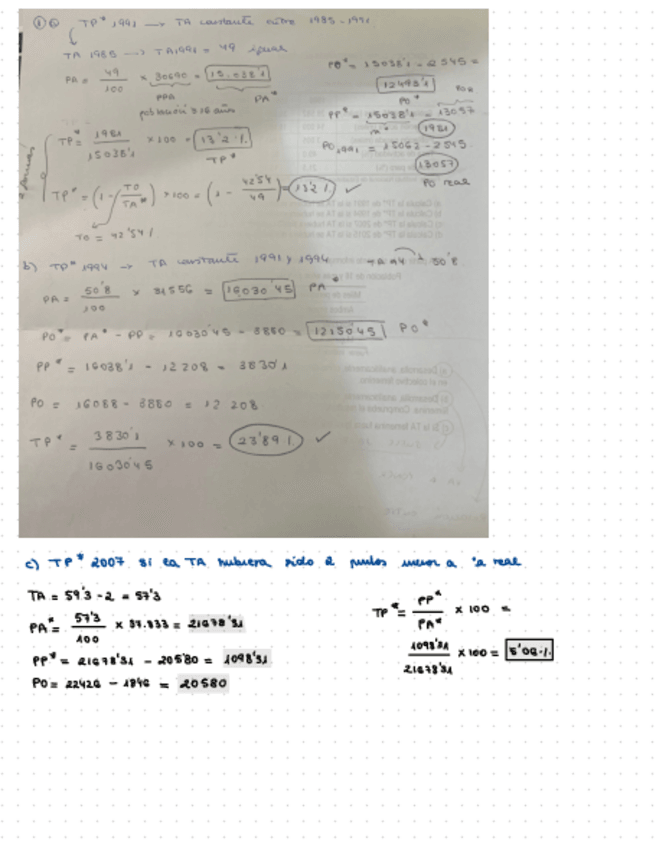 ① a) TP* 1991 → TA constante entre 1985-1991
TA 1985 → TA1991 = 49 igual
PA = 49/100 × 30690 = 15.038'1
PPA PA*
población ≥16 años
PO* = 15038'1 - 2545 =
12493'1
PO*
PP* = 15038'1 - 13057
1981
PO1991 = 15062 - 2545
13057
PO real
TP* = 1981/15038'1 × 100 = 13'2%
TP*
TP* = (1 - TO/TA*) × 100 = (1 - 42'54/49) = 13'2% ✓
TO = 42'54%
b) TP* 1994 → TA constante 1991 y 1994
50'8
PA = 50'8/100 × 31556 = 16030'45 PA*
PO* = PA* - PP = 16030'45 - 3880 = 12150'45 PO*
PP* = 16038'1 - 12208 = 3830'1
PO = 16088 - 3880 = 12208
TP* = 3830'1/16030'45 × 100 = 23'89% ✓
c) TP* 2007 si la TA hubiera sido 2 puntos menor a la real
TA = 59'3 - 2 = 57'3
PA* = 57'3/100 × 37.833 = 21678'31
PP* = 21678'31 - 20580 = 1098'31
PO = 22426 - 1846 = 20580
TP* = PP*/PA* × 100 =
1098'31/21678'31 × 100 = 5'06%